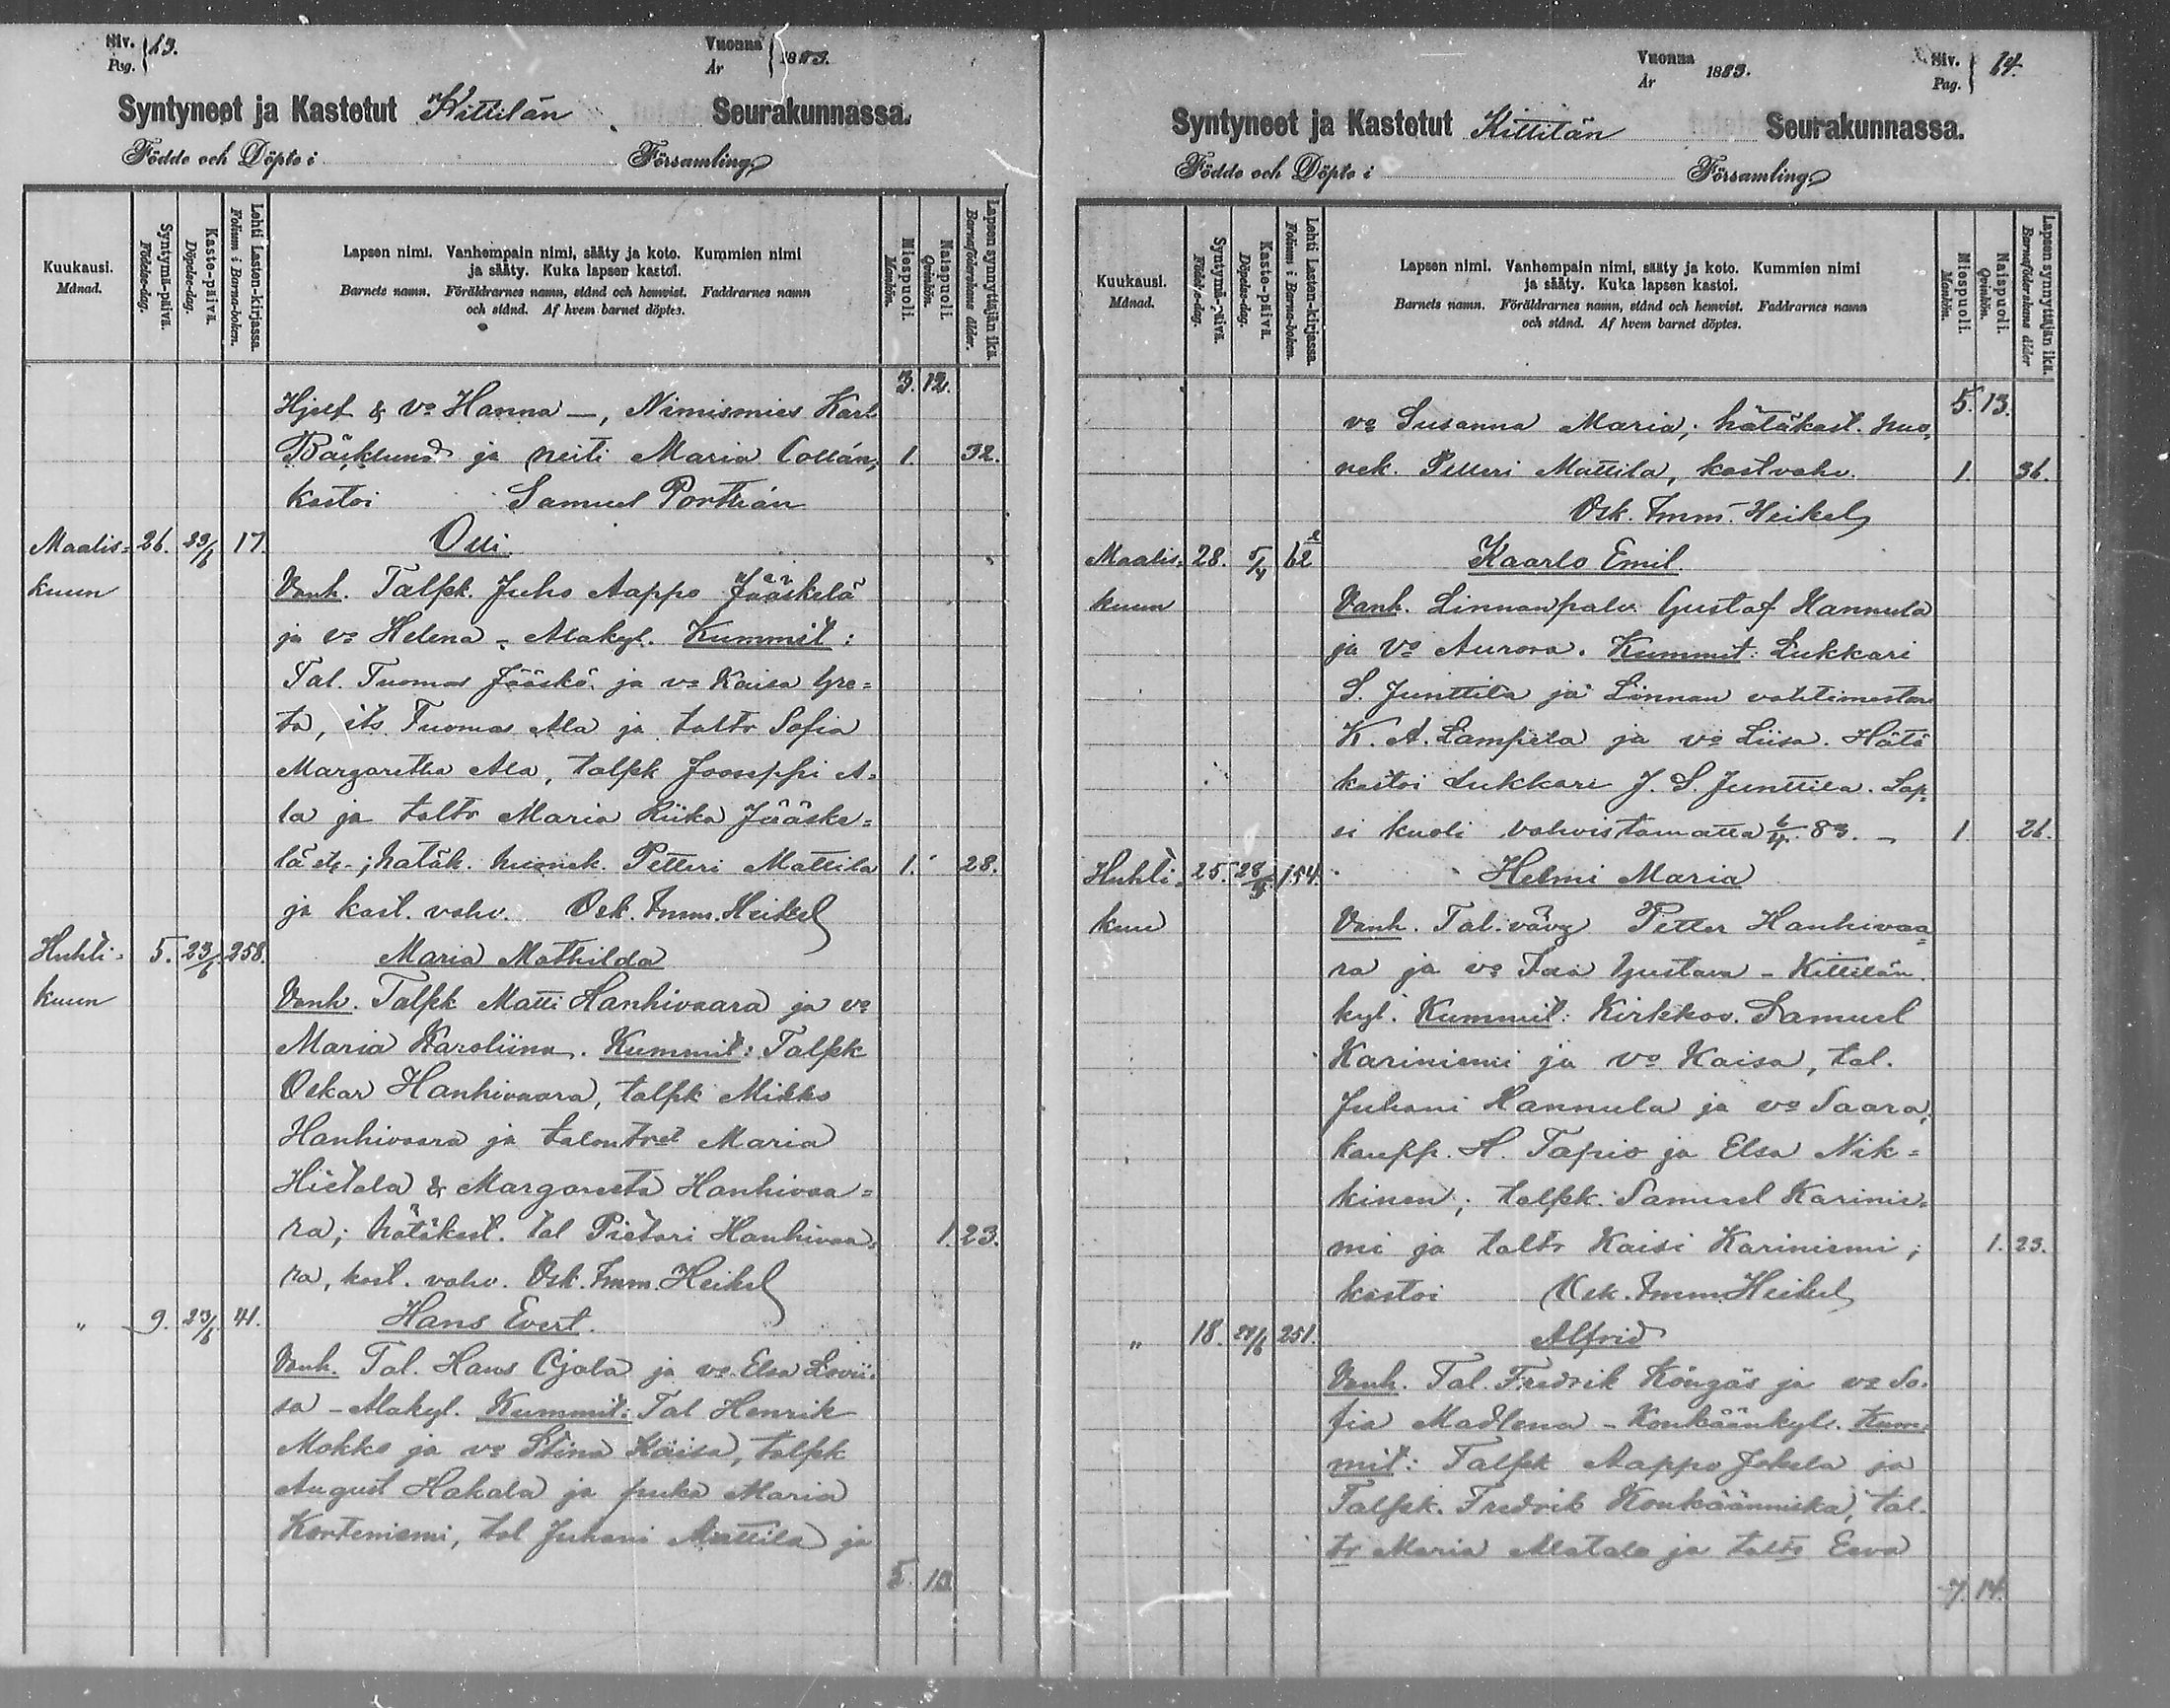 Siv. Pag. } 13.
Vuonna År } 1883.
Syntyneet ja Kastetut Kittilän Seurakunnassa.
Födde och Döpte i Församling
Kuukausi. Månad.
Syntymä-päivä. Födelse-dag.
Kaste-päivä. Döpelse-dag.
Lehti Lasten-kirjassa. Folium i Barna-boken.
Lapsen nimi. Vanhempain nimi, sääty ja koto. Kummien nimi
ja sääty. Kuka lapsen kastoi.
Barnets namn. Föräldrarnes namn, stånd och hemvist. Faddrarnes namn
och stånd. Af hvem barnet döptes.
Miespuoli. Mankön.
Naispuoli. Qvinkön.
Lapsen synnyttäjän ikä. Barnaföderskans ålder.
3. 12.
Hjelt & vo Hanna —, Nimismies Karl
Bäcklund ja neiti Maria Collán, 1. 32.
kastoi Samuel Porthán
Maalis= 26. 29/6 17. Olli.
kuun Vanh. Talpk. Juho Aappo Jääskelä
ja vo Helena - Alakyl. Kummit:
Tal. Tuomas Jääskö ja vo Kaisa Gre=
ta, its. Tuomas Ala ja taltr Sofia
Margaretha Ala, talpk Jooseppi A=
la ja taltr Maria Riika Jääske=
lä; hätäk. nuonek. Petteri Mattila 1. 28.
ja kast. vahv. Osk. Imm. Heikel
Huhti= 5. 23/6. 258. Maria Mathilda
kuun Vanh. Talpk Matti Hanhivaara ja vo
Maria Karoliina. Kummit: Talpk
Oskar Hanhivaara, talpk Mikko
Hanhivaara ja talontret Maria
Hietala & Margareeta Hanhivaa=
ra; hätäkast. tal Pietari Hanhivaa= 1. 23.
ra, kast. vahv. Osk. Imm. Heikel
„ 9. 23/6. 41. Hans Evert.
Vanh. Tal. Hans Ojala ja vo Elsa Lovii=
sa - Alakyl. Kummit: Tal Henrik
Mokko ja vo Stina Kaisa, talpk
August Hakala ja puka Maria
Korteniemi, tal Juhani Mattila ja
5. 13.
Vuonna År 1883.
Siv. Pag. } 14.
Syntyneet ja Kastetut Kittilän Seurakunnassa.
Födde och Döpte i Församling
Kuukausi. Månad.
Syntymä-päivä. Födelse-dag.
Kaste-päivä. Döpelse-dag.
Lehti Lasten-kirjassa. Folium i Barna-boken.
Lapsen nimi. Vanhempain nimi, sääty ja koto. Kummien nimi
ja sääty. Kuka lapsen kastoi.
Barnets namn. Föräldrarnes namn, stånd och hemvist. Faddrarnes namn
och stånd. Af hvem barnet döptes.
Miespuoli. Mankön.
Naispuoli. Qvinkön.
Lapsen synnyttäjän ikä. Barnaföderskans ålder
5. 13.
vo Susanna Maria; hätäkast. nuo=
nek. Petteri Mattila, kast vahv. 1. 36.
Osk. Imm. Heikel
Maalis= 28. 5/4 62 Kaarlo Emil.
kuun Vanh. Linnanpalv. Gustaf Hannula
ja Vo Aurora. Kummit: Lukkari
S. Junttila ja Linnan vahtimestari
K. A. Lampela ja vo Liisa. Hätä
kastoi Lukkari J. S. Junttila. Lap=
si kuoli vahvistamatta 6/4. 83. — 1. 26.
Huhti= 25. 28 154. Helmi Maria
kuu Vanh. Tal. vävy Petter Hanhivaa=
ra ja vo Gustava - Kittilän
kyl. Kummit: Kirkkov. Samuel
Kariniemi ja vo Kaisa, tal.
Juhani Hannula ja vo Saara,
kaupp. H. Tapio ja Elsa Nik=
kinen; talpk. Samuel Karinie=
mi ja taltr Kaisi Kariniemi; 1. 23.
kastoi Osk. Imm. Heikel
„ 18. 251. Alfrid
Vanh. Tal. Fredrik Köngäs ja vo So=
fia Madlena - Konkäänkyl. Kum=
mit: Talpk Aappo Jokela ja
Talpk. Fredrik Konkäänniska, tal=
tr Maria Alatalo ja taltr Eeva
7. 14.